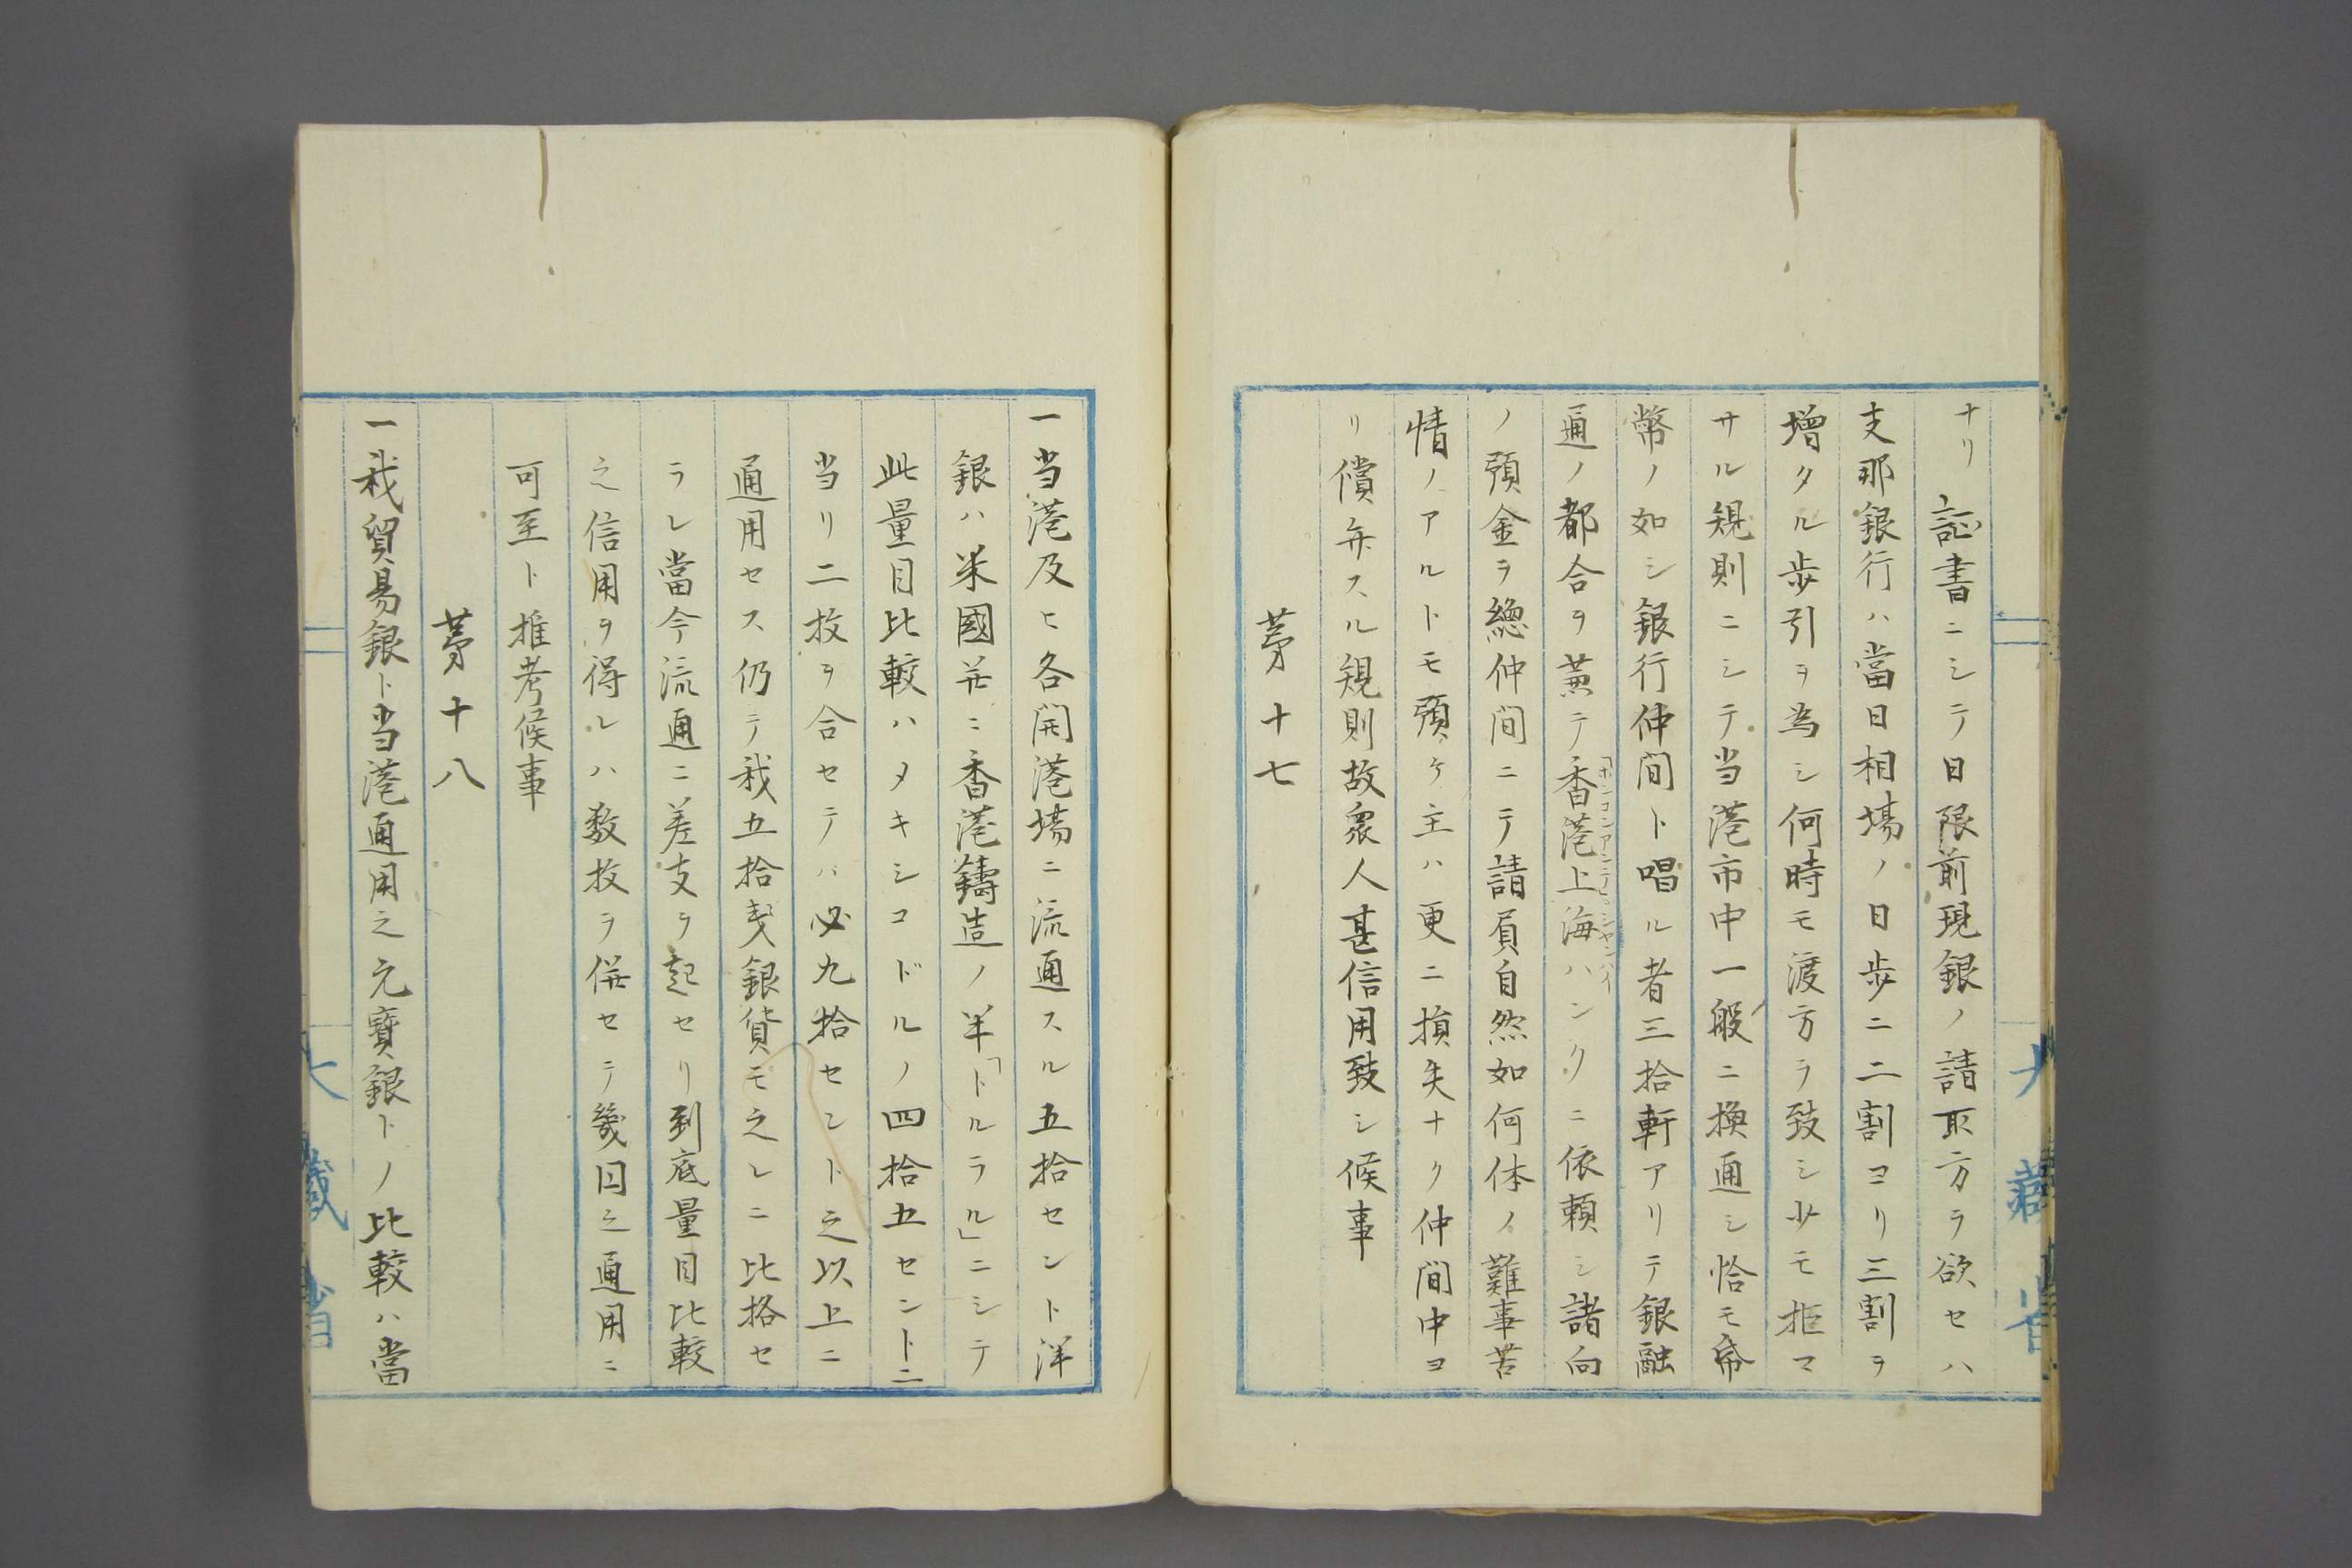 ナリ　証書ニシテ日限前現銀ノ請取方ヲ欲セハ
支那銀行ハ當日相場ノ日歩ニ二割ヨリ三割ヲ
増タル歩引ヲ為シ何時モ渡方ヲ致シ少モ拒マ
サル規則ニシテ当港市中一般ニ換通シ恰モ帋
幣ノ如シ銀行仲間ト唱ル者三拾軒アリテ銀融
通ノ都合ヲ兼テ香港上海ハンクニ依頼シ諸向
ノ預金ヲ總仲間ニテ請負自然如何体ノ難事苦
情ノアルトモ預ケ主ハ更ニ損失ナク仲間中ヨ
リ償弁スル規則故衆人甚信用致シ候事
第十七
一当港及ヒ各開港場ニ流通スル五拾セント洋
銀ハ米國并ニ香港鑄造ノ半「ドルラル」ニシテ
此量目比較ハメキシコドルノ四拾五セントニ
当リ二枚ヲ合セテハ必九拾セント之以上ニ
通用セス仍テ我五拾銭銀貨モ之レニ比格セ
ラレ當今流通ニ差支ヲ起セリ到底量目比較
之信用ヲ得レハ数枚ヲ併セテ幾円之通用ニ
可至ト推考候事
第十八
一我貿易銀ト当港通用之元寳銀トノ比較ハ當
大藏省